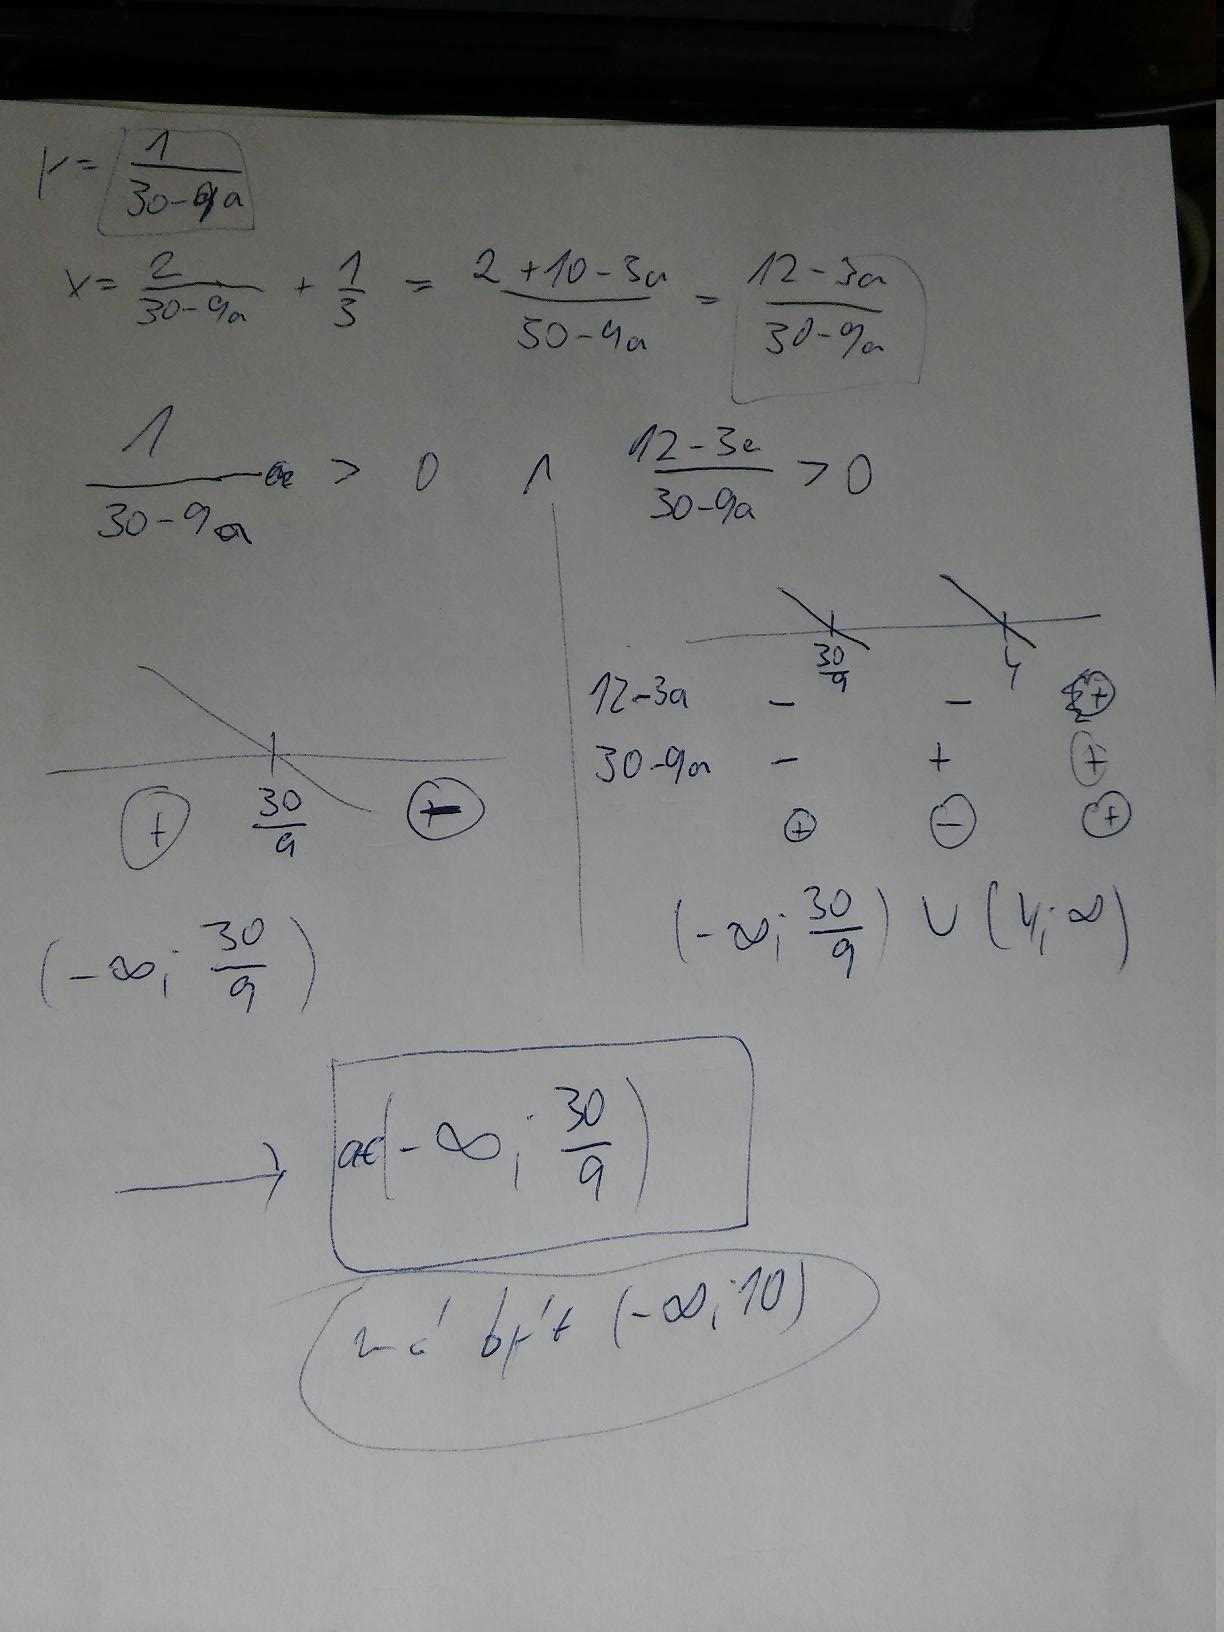 y = 1/(30-9a)
x = 2/(30-9a) + 1/3 = (2+10-3a)/(30-9a) = (12-3a)/(30-9a)
1/(30-9a) > 0 ∧ (12-3a)/(30-9a) > 0
30/9 4
12-3a - - +
30-9a - + +
+ - +
+ 30/9 -
(-∞; 30/9)
(-∞; 30/9) ∪ (4; ∞)
→ a∈(-∞; 30/9)
má být (-∞; 10)